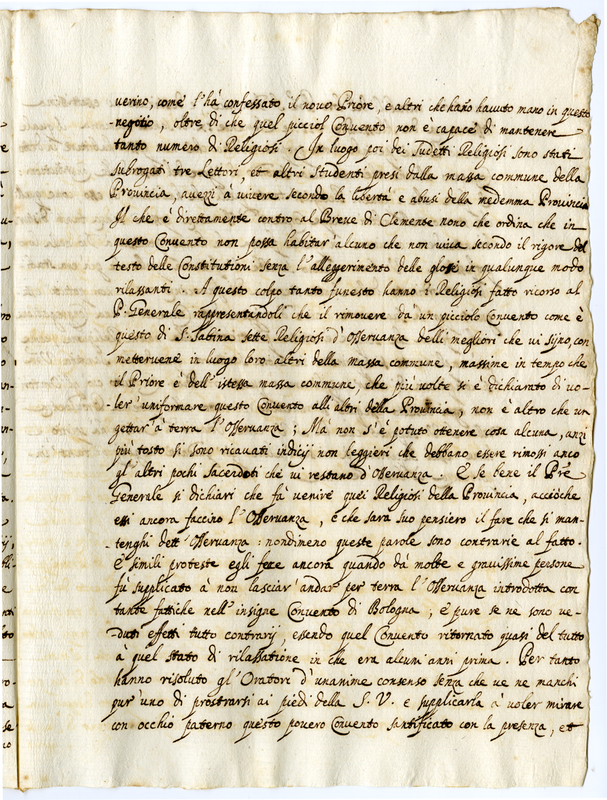 verino, come l'hà confessato il novo Priore, e altri che hano havuto mano in questo
negotio, oltre di che quel picciol Convento non è capace di mantenere
tanto numero di Religiosi. In luogo poi dei sudetti Religiosi sono stati
subrogati tre Lettori, et altri Studenti presi dalla massa commune della
Provincia, avezzi à vivere secondo la libertà e abusi della medemma Provincia
Il che è direttamente contro al Breve di Clemente nono che ordina che in
questo Convento non possa habitar alcuno che non viva secondo il rigore del
testo delle Constitutioni senza l'alleggerimento delle glosse in qualunque modo
rilassanti. A questo colpo tanto funesto hanno i Religiosi fatto ricorso al
P. Generale rappresentandoli che il rimovere dà un picciolo Convento come è
questo di S. Sabina sette Religiosi d'Osservanza delli megliori che vi sijno, con
mettervene in luogo loro altri della massa commune, massime in tempo che
il Priore è dell'istessa massa commune che più volte si è dichiarato di vo-
-ler' uniformare questo Convento alli altri della Provincia, non è altro che un
gettar à terra l'Osservanza; Mà non s'è potuto ottenere cosa alcuna, anzi
più tosto si sono ricavati indicij non leggieri che debbano essere rimossi anco
gl'altri pochi Sacerdoti che vi restano d'Osservanza. E se bene il Pre
Generale si dichiari che fà venire quei Religiosi della Provincia, acciòche
essi ancora faccino l'Osservanza, e che sarà suo pensiero il fare che si man-
-tenghi dett'Osservanza: nondimeno queste parole sono contrarie al fatto.
E simili proteste egli fece ancora quando dà molte e gravissime persone
fù supplicato à non lasciar' andar per terra l'Osservanza introdotta con
tante fattiche nell'insigne Convento di Bologna, e pure se ne sono ve-
-duti effetti tutto contrarij, essendo quel Convento ritornato quasi del tutto
à quel stato di rilassatione in che era alcuni anni prima. Per tanto
hanno risoluto gl'Oratori d'unanime consenso senza che ve ne manchi
pur'uno di prostrarsi ai piedi della S. V. e supplicarla à voler mirare
con occhio paterno questo povero Convento santificato con la presenza, et